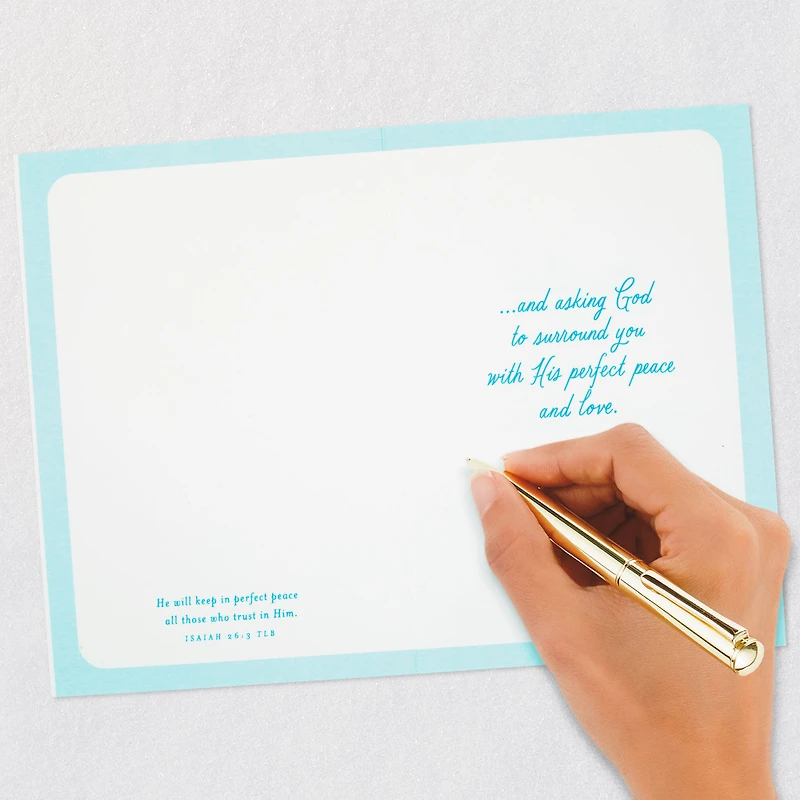 ...and asking God
to surround you
with His perfect peace
and love.
He will keep in perfect peace
all those who trust in Him.
ISAIAH 26:3 TLB